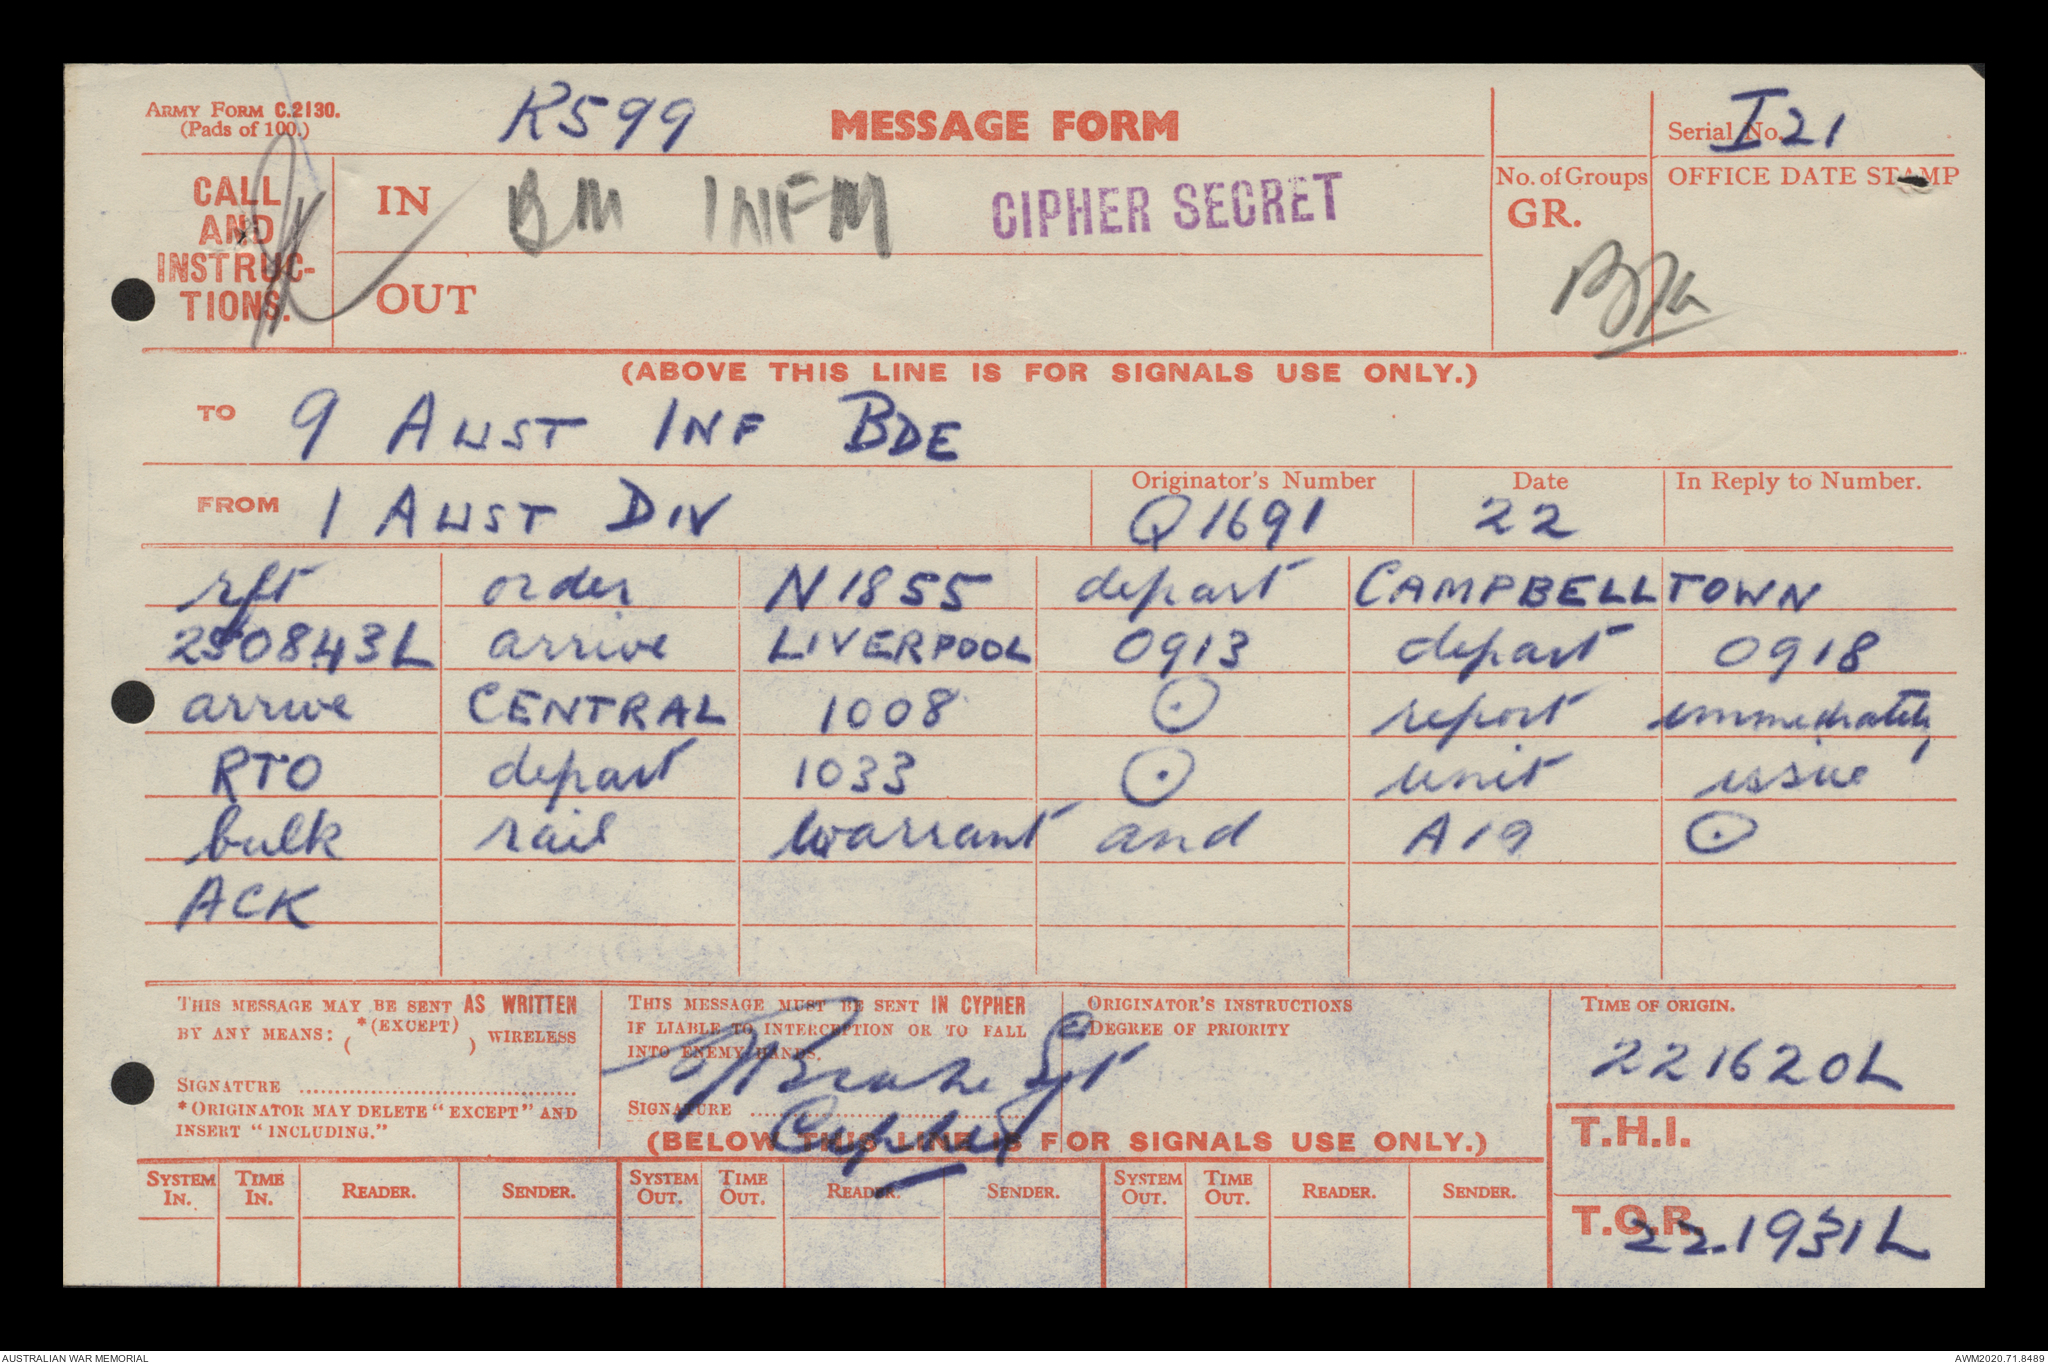 ARMY FORM C.2130.
(Pads of 100.)
R599
MESSAGE FORM
Serial No. I21
CALL AND INSTRUC-TIONS.
IN BM INFM CIPHER SECRET
OUT
No. of Groups
GR.
OFFICE DATE STAMP
(ABOVE THIS LINE IS FOR SIGNALS USE ONLY.)
TO 9 AUST INF BDE
FROM 1 AUST DIV
Originator's Number
Q1691
Date
22
In Reply to Number.
rft order N1855 depart CAMPBELLTOWN
250843L arrive LIVERPOOL 0913 depart 0918
arrive CENTRAL 1008 ⊙ report immediately
RTO depart 1033 ⊙ unit issue
bulk rail warrant and A19 ⊙
ACK
THIS MESSAGE MAY BE SENT AS WRITTEN
BY ANY MEANS: *(EXCEPT) ( ) WIRELESS
SIGNATURE
*ORIGINATOR MAY DELETE "EXCEPT" AND
INSERT "INCLUDING."
THIS MESSAGE MUST BE SENT IN CYPHER
IF LIABLE TO INTERCEPTION OR TO FALL
INTO ENEMY HANDS.
SIGNATURE
Sgt
Cipher
ORIGINATOR'S INSTRUCTIONS
DEGREE OF PRIORITY
TIME OF ORIGIN.
221620L
T.H.I.
T.O.R. 22.1931L
(BELOW THIS LINE IS FOR SIGNALS USE ONLY.)
SYSTEM IN. TIME IN. READER. SENDER. SYSTEM OUT. TIME OUT. READER. SENDER. SYSTEM OUT. TIME OUT. READER. SENDER.
AUSTRALIAN WAR MEMORIAL
AWM2020.71.8489